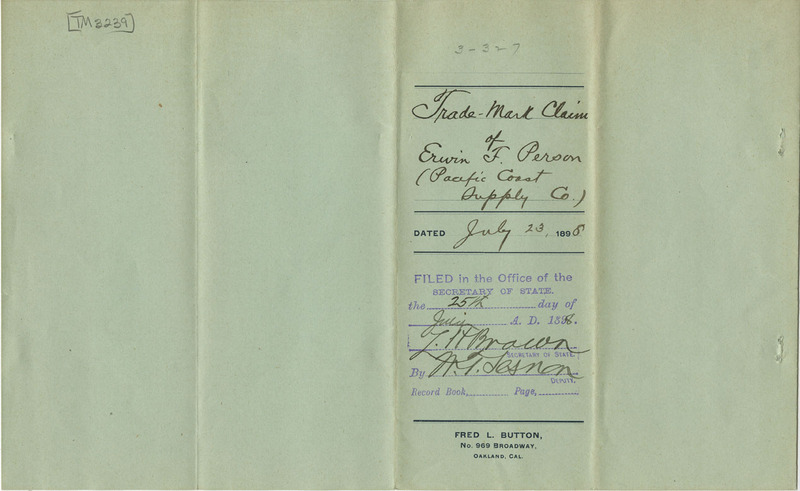 [TM3239]
3-3=7
Trade-Mark Claim
of
Erwin F. Person
(Pacific Coast
Supply Co.)
DATED July 23, 1898
FILED in the Office of the
SECRETARY OF STATE.
the 25th day of
July A. D. 1898.
L. H. Brown
SECRETARY OF STATE.
By
DEPUTY.
Record Book, Page,
FRED L. BUTTON,
No. 969 BROADWAY,
OAKLAND, CAL.